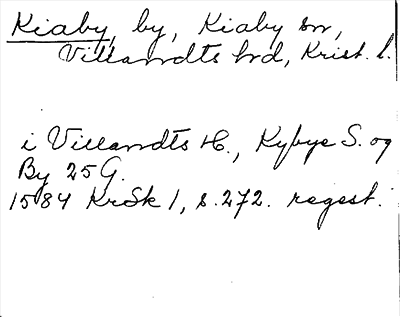 Kiaby, by, Kiaby sn,
Villandts hrd, Krist. l.
i Villandts H., Kybye S. og
By 25 G.
1584 KrSk 1, s. 272. regest.